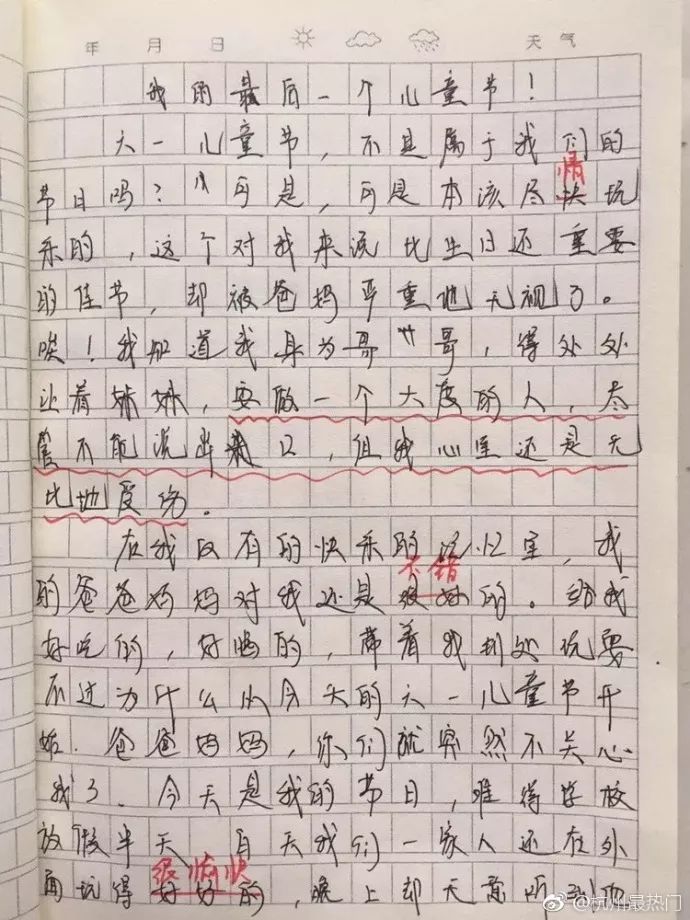 年 月 日 天气
我的最后一个儿童节!
六一儿童节,不是属于我们的
情
节日吗?可是,可是本该尽快玩
乐的,这个对我来说比生日还重要
的佳节,却被爸妈严重地无视了。
唉!我知道我身为哥哥,得处处
让着妹妹,要做一个大度的人,尽
管不能说出来口,但我心里还是无
比地受伤。
在我仅有的快乐的记忆里,我
不错
的爸爸妈妈对我还是很好的。给我
好吃的,好喝的,带着我到处玩耍
不过为什么从今天的六一儿童节开
始.爸爸妈妈,你们就突然不关心
我了.今天是我的节日,难得学校
放假半天 白天我们一家人还在外
很愉快
面玩得好好的,晚上却无意听到他
@杭州最热门